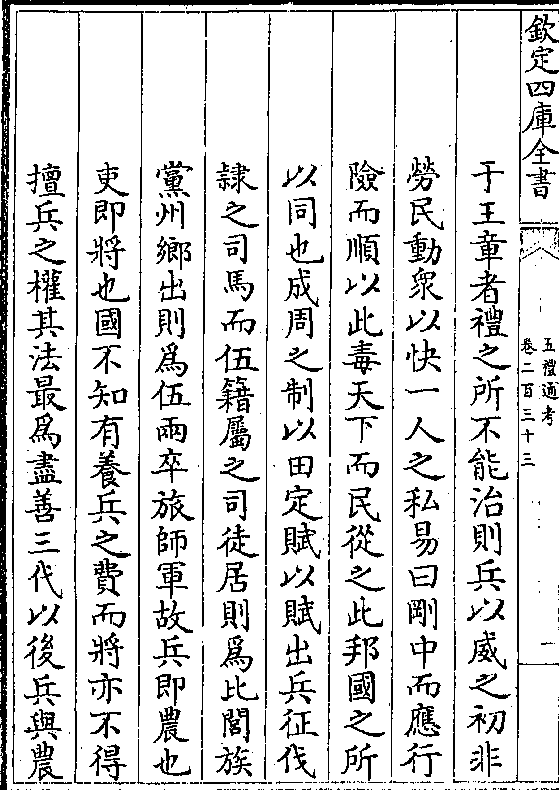 欽定四庫全書
五禮通考
卷二百三十三
一
于王章者禮之所不能治則兵以威之初非
勞民動衆以快一人之私易曰剛中而應行
險而順以此毒天下而民從之此邦國之所
以同也成周之制以田定賦以賦出兵征伐
隷之司馬而伍籍屬之司徒居則爲比閭族
黨州鄉出則爲伍兩卒旅師軍故兵即農也
吏即將也國不知有養兵之費而將亦不得
擅兵之權其法最爲盡善三代以後兵與農